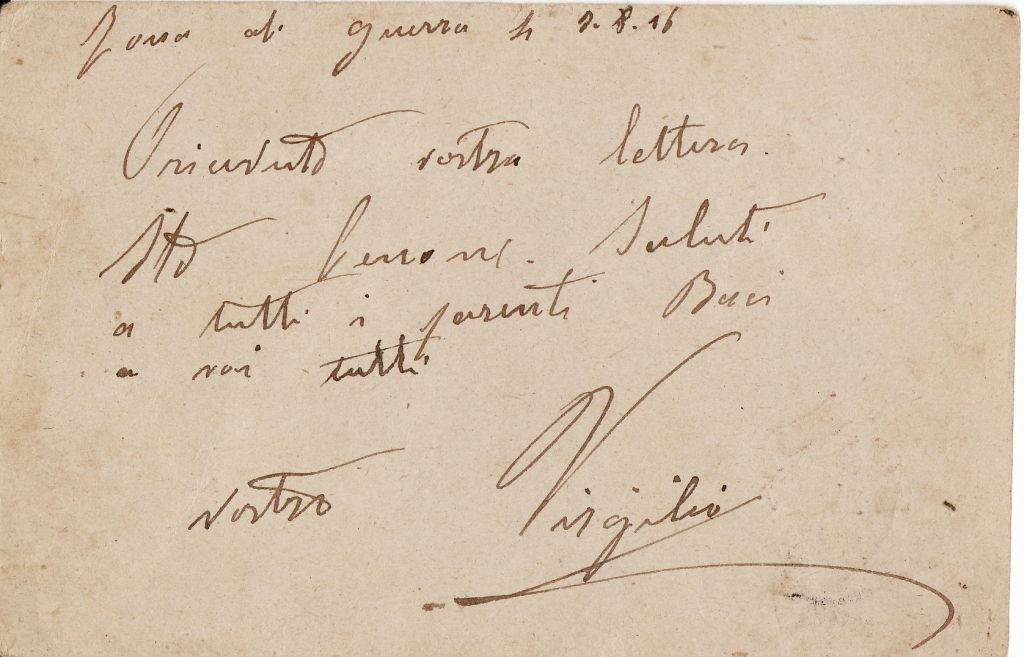 Zona di guerra li 9.8.16
O ricevuto vostra lettera.
Sto benone. Saluti
a tutti i parenti Baci
a voi tutti
vostro Virgilio